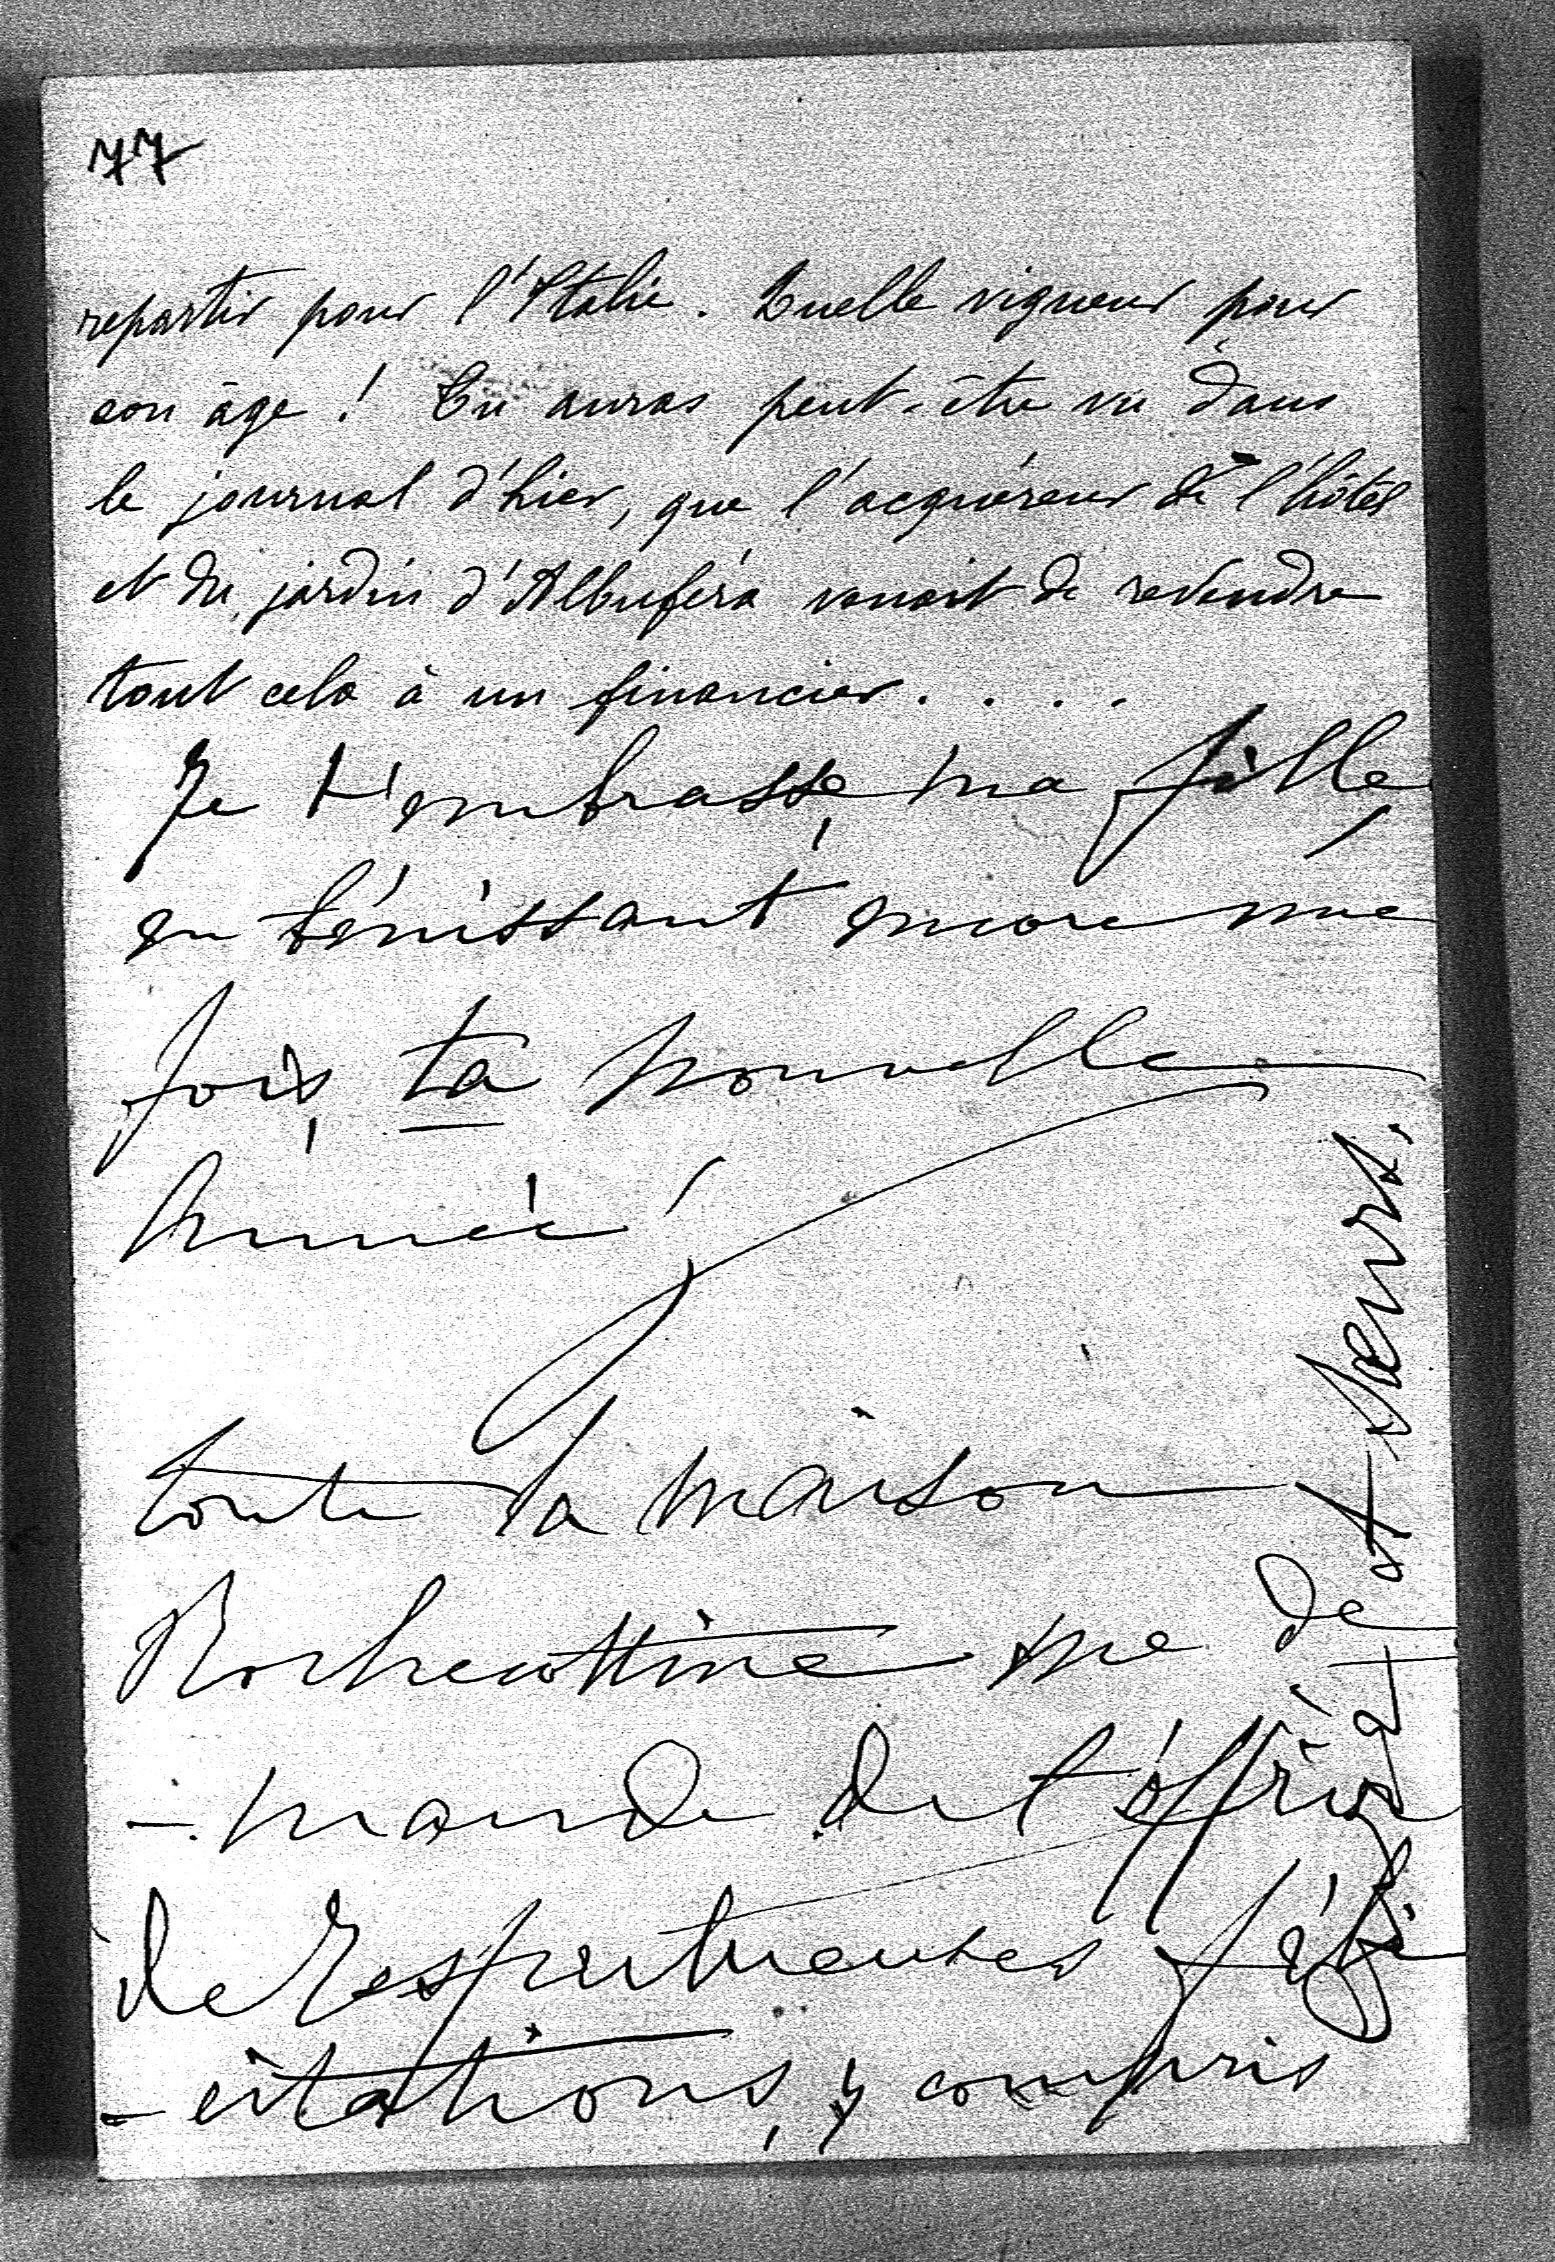 77
repartir pour l'Italie. Quelle vigueur pour
son âge ! Tu auras peut-être vu dans
le journal d'hier, que l'acquéreur de l'hôtel
et du jardin d'Albuféra venait de revendre
tout cela à un financier. . . .
Je t'embrasse, ma fille,
en bénissant encore une
fois, ta nouvelle
Année !
toute la maison
Rochecottine me de
- mande de t'offrir
de respectueuses féli
- citations, y compris
et sœurs.